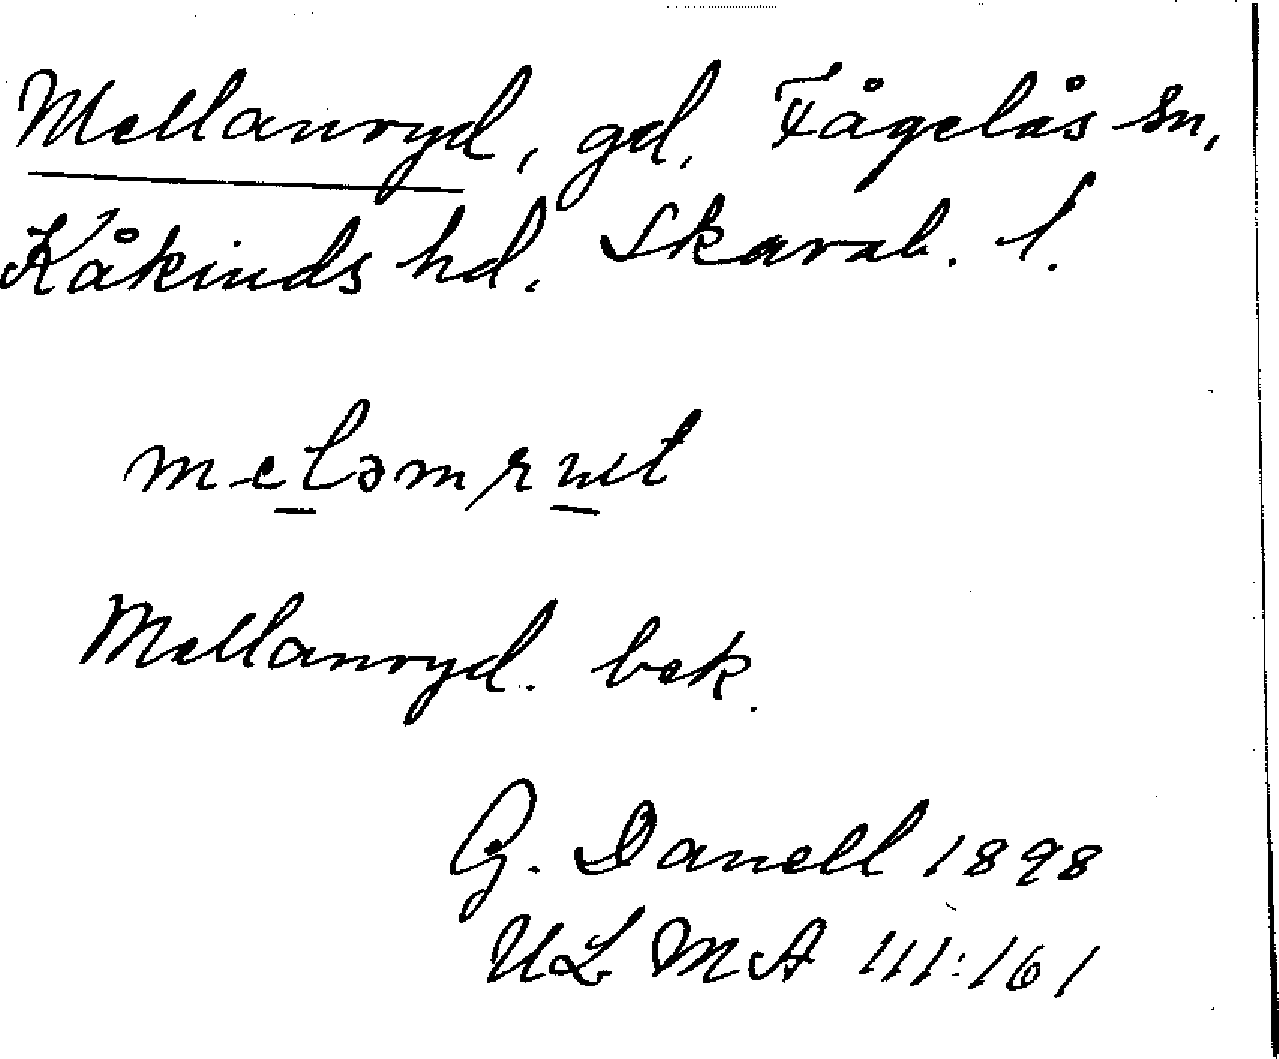 Mellanryd, gd. Fågelås sn,
Kåkinds hd. Skarab. l.
Mellanryd. bek.
G. Danell 1898
ULMA 111:161